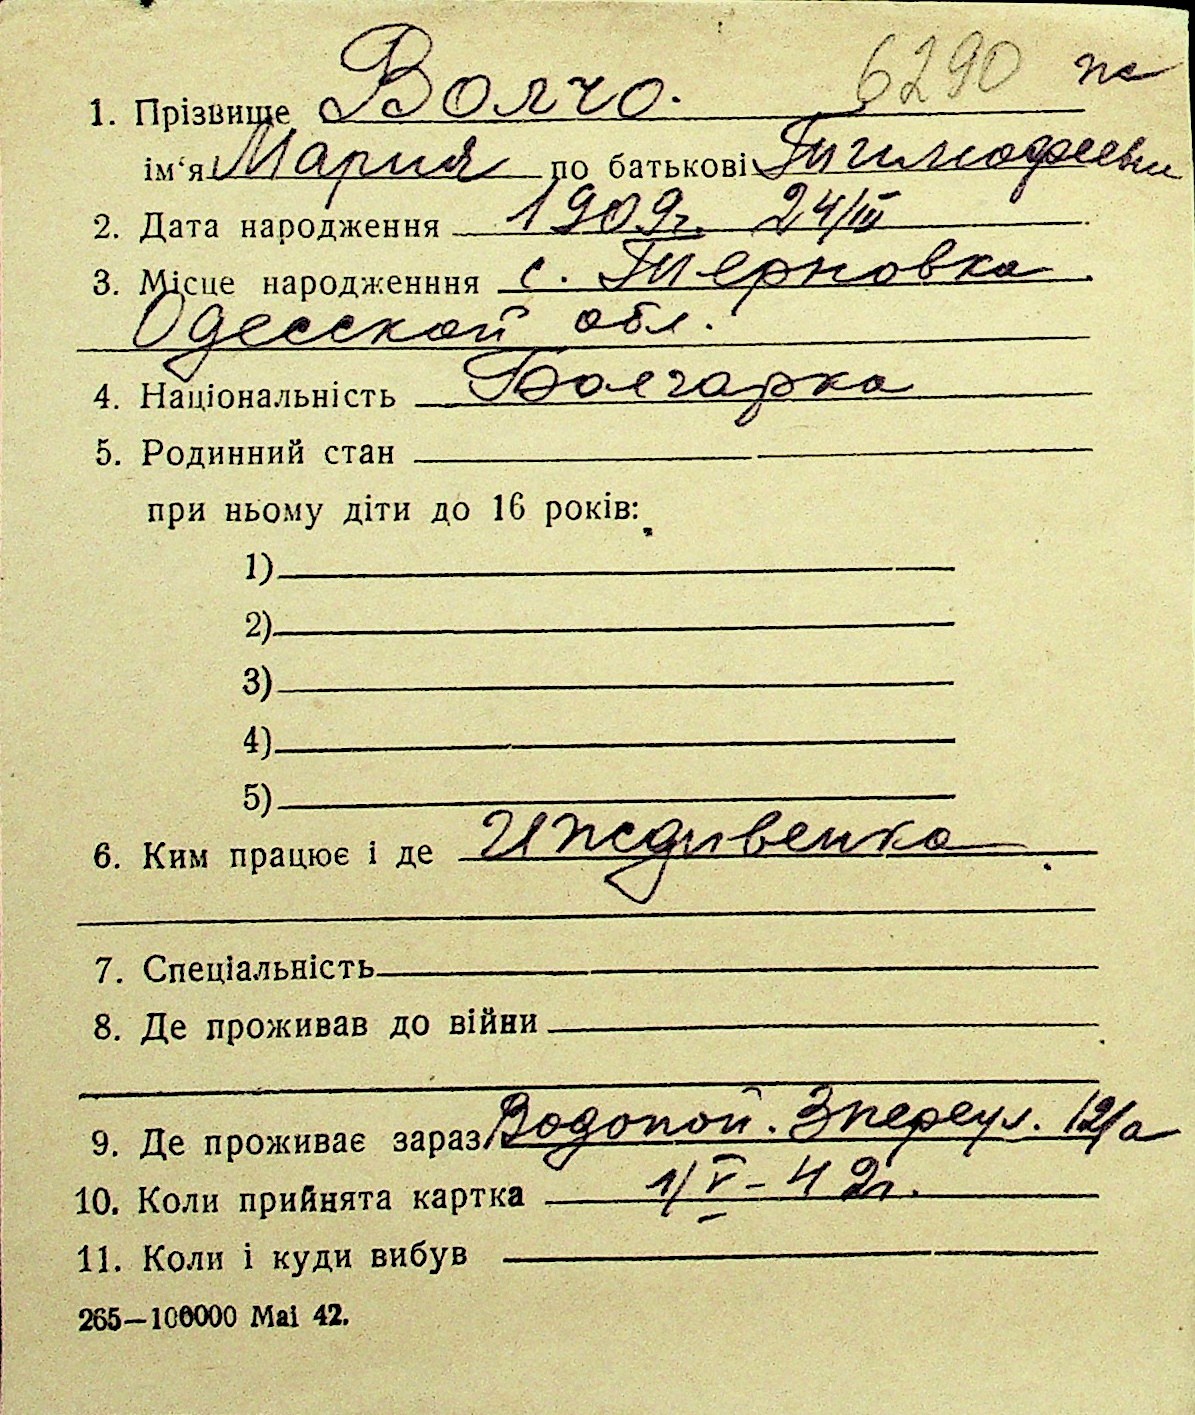 6290 ж
1. Прізвище Волчо.
ім'я Мария по батькові Тимофеевна
2. Дата народження 1909г. 24/III
3. Місце народженння с. Терновка
Одесской обл.
4. Національність Болгарка
5. Родинний стан
при ньому діти до 16 років:
1)
2)
3)
4)
5)
6. Ким працює і де Иждивенка
7. Спеціальність
8. Де проживав до війни
9. Де проживає зараз Водопой. 3 переул. 12/а
10. Коли прийнята картка 1/V – 42г.
11. Коли і куди вибув
265—100000 Mai 42.